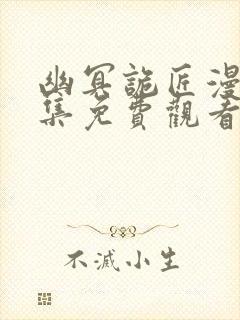 幽冥詭匠漫
集免費觀看
不滅小生